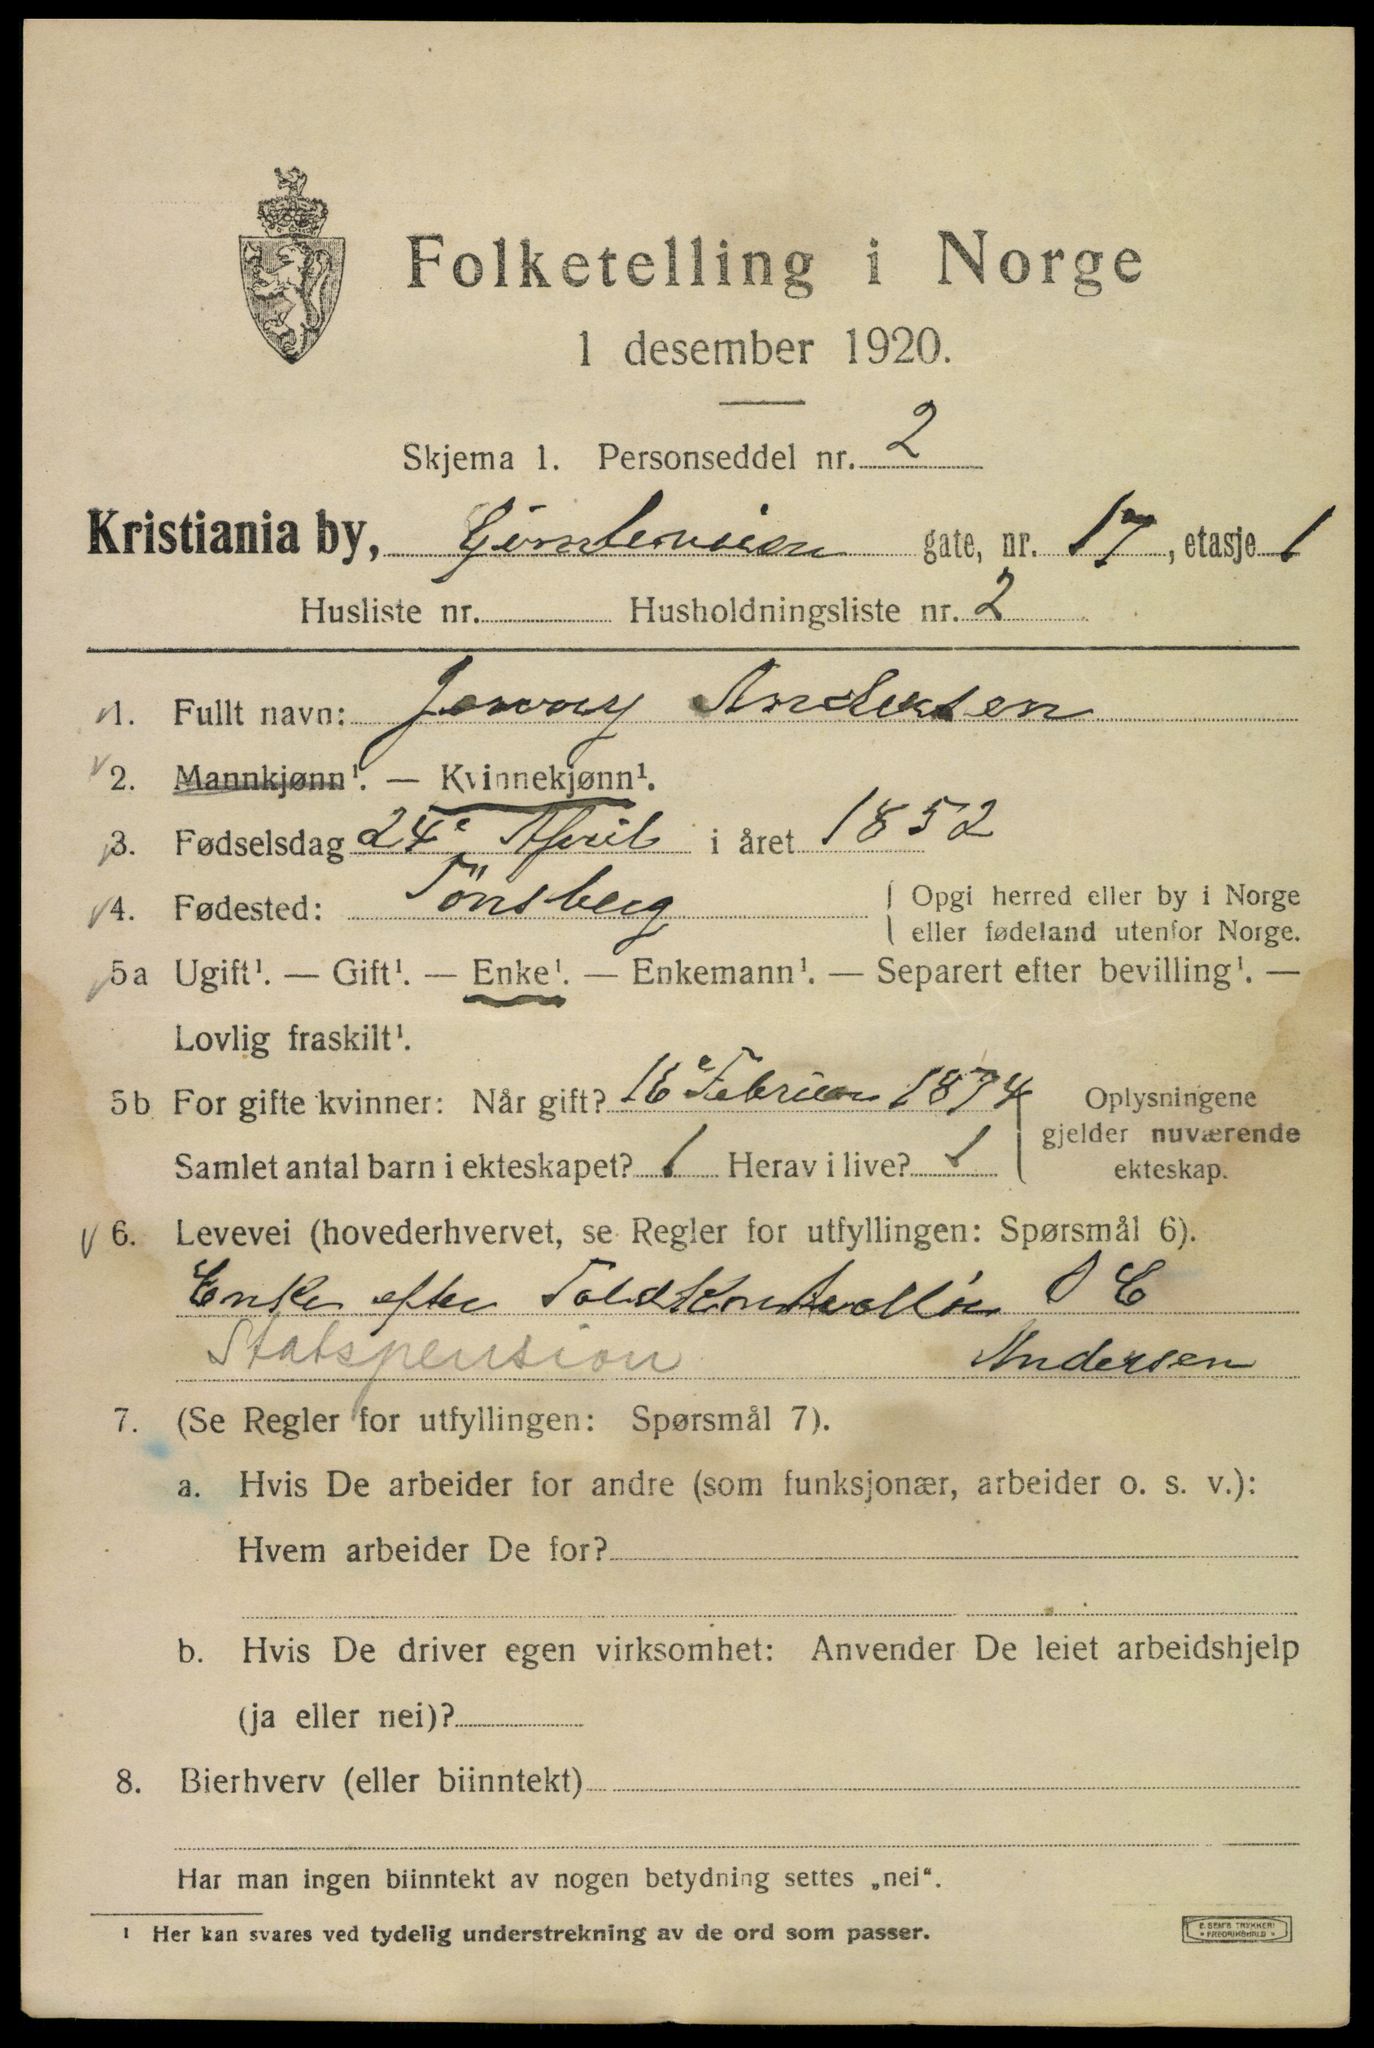 Folketelling i Norge
1 desember 1920.
Skjema 1. Personseddel nr. 2
Kristiania by, Gimleveien gate, nr. 17, etasje 1
Husliste nr. Husholdningsliste nr. 2
1. Fullt navn: Jenny Andersen
2. Mannkjønn¹. — Kvinnekjønn¹.
3. Fødselsdag 24e April i året 1852
4. Fødested: Tönsberg
Opgi herred eller by i Norge
eller fødeland utenfor Norge.
5a Ugift¹. — Gift¹. — Enke¹. — Enkemann¹. — Separert efter bevilling¹. —
Lovlig fraskilt¹.
5b For gifte kvinner: Når gift? 16e Februar 1874
Samlet antal barn i ekteskapet? 1 Herav i live? 1
Oplysningene
gjelder nuværende
ekteskap.
6. Levevei (hovederhvervet, se Regler for utfyllingen: Spørsmål 6).
Enke efter Toldkontrollör C
Statspension Andersen
7. (Se Regler for utfyllingen: Spørsmål 7).
a. Hvis De arbeider for andre (som funksjonær, arbeider o. s. v.):
Hvem arbeider De for?
b. Hvis De driver egen virksomhet: Anvender De leiet arbeidshjelp
(ja eller nei)?
8. Bierhverv (eller biinntekt)
Har man ingen biinntekt av nogen betydning settes „nei“.
¹ Her kan svares ved tydelig understrekning av de ord som passer.
E. SEM'S TRYKKERI
FREDRIKSHALD